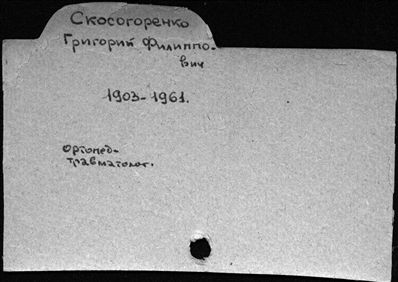 Скосогоренко
Григорий Филиппо-
вич
1903-1961.
ортопед-
травматолог.